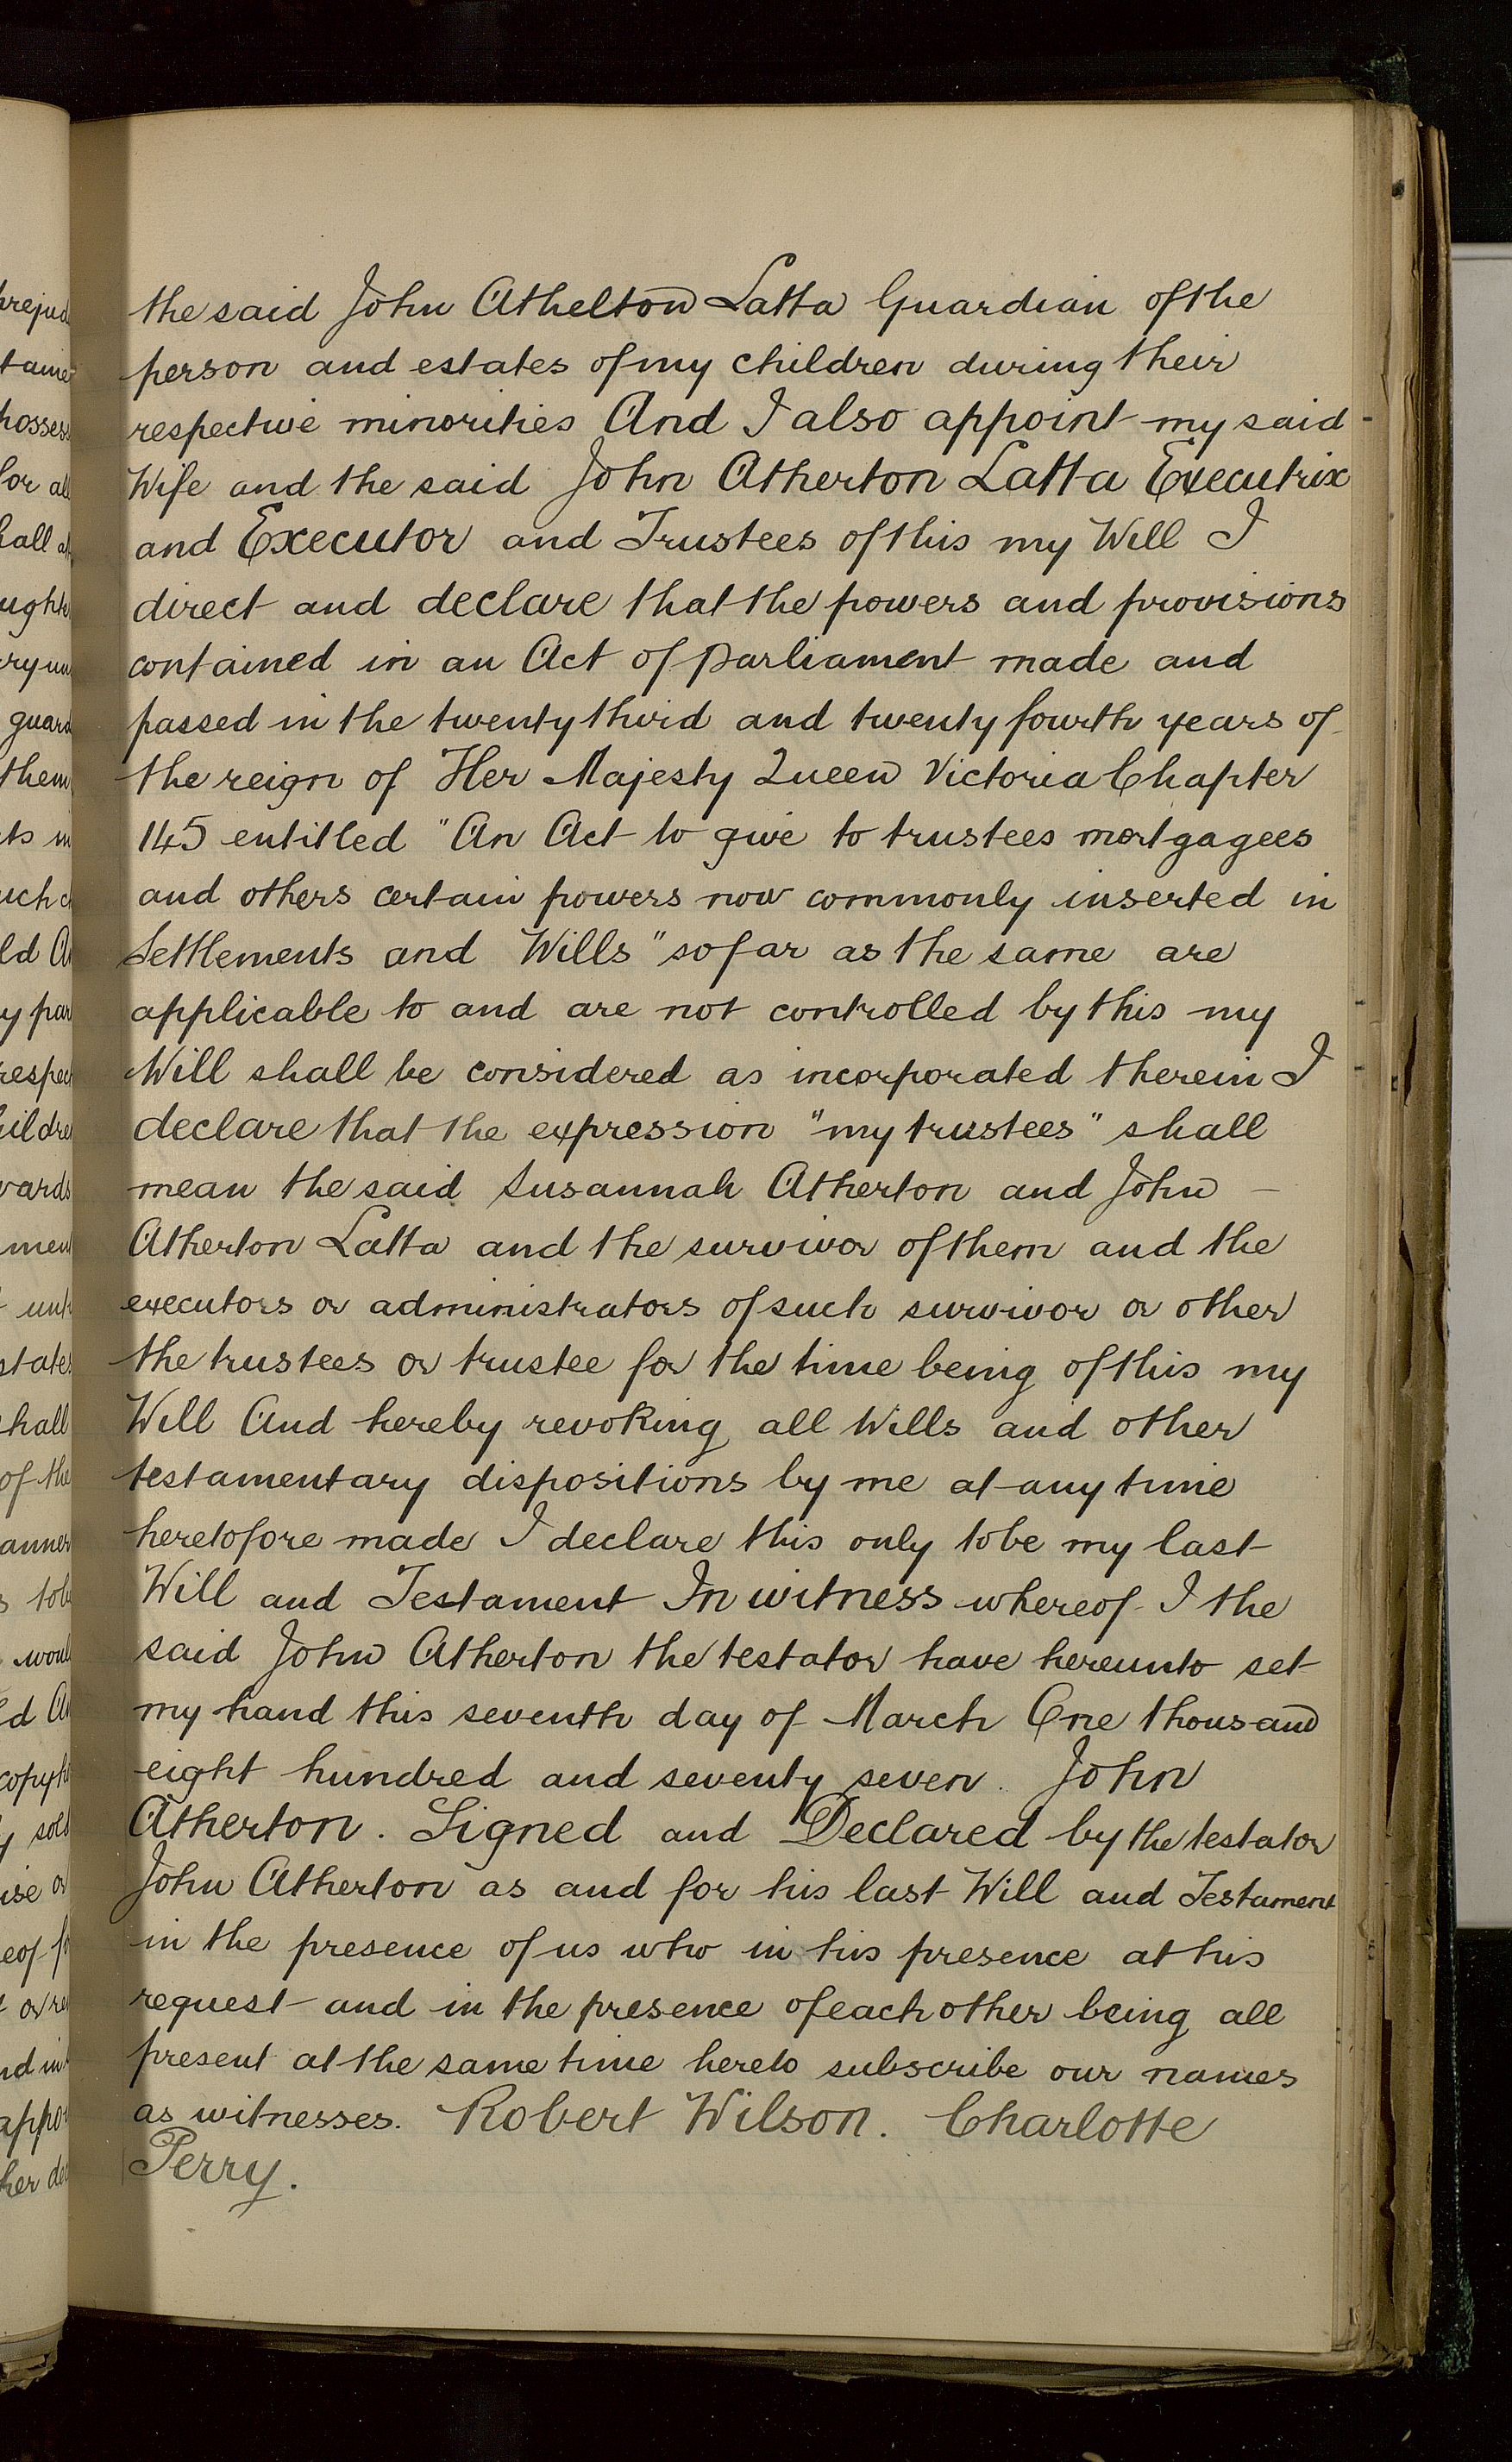 the said John Athelton Latta Guardian of the
person and estates of my children during their
respective minorities And I also appoint my said -
Wife and the said John Atherton Latta Executrix
and Executor and Trustees of this my Will I
direct and declare that the powers and provisions
contained in an Act of parliament made and
passed in the twenty third and twenty fourth years of
the reign of Her Majesty Queen Victoria Chapter
145 entitled "An Act to give to trustees mortgagees
and others certain powers now commonly inserted in
Settlements and Wills" so far as the same are
applicable to and are not controlled by this my
Will shall be considered as incorporated therein I
declare that the expression "my trustees" shall
mean the said Susannah Atherton and John -
Atherton Latta and the survivor of them and the
executors or administrators of such survivor or other
the trustees or trustee for the time being of this my
Will And hereby revoking all Wills and other
testamentary dispositions by me at any time
heretofore made I declare this only to be my last
Will and Testament In witness whereof I the
said John Atherton the testator have hereunto set
my hand this seventh day of March One thousand
eight hundred and seventy seven. John
Atherton. Signed and Declared by the testator
John Atherton as and for his last Will and Testament
in the presence of us who in his presence at his
request and in the presence of each other being all
present at the same time hereto subscribe our names
as witnesses. Robert Wilson. Charlotte
Perry.